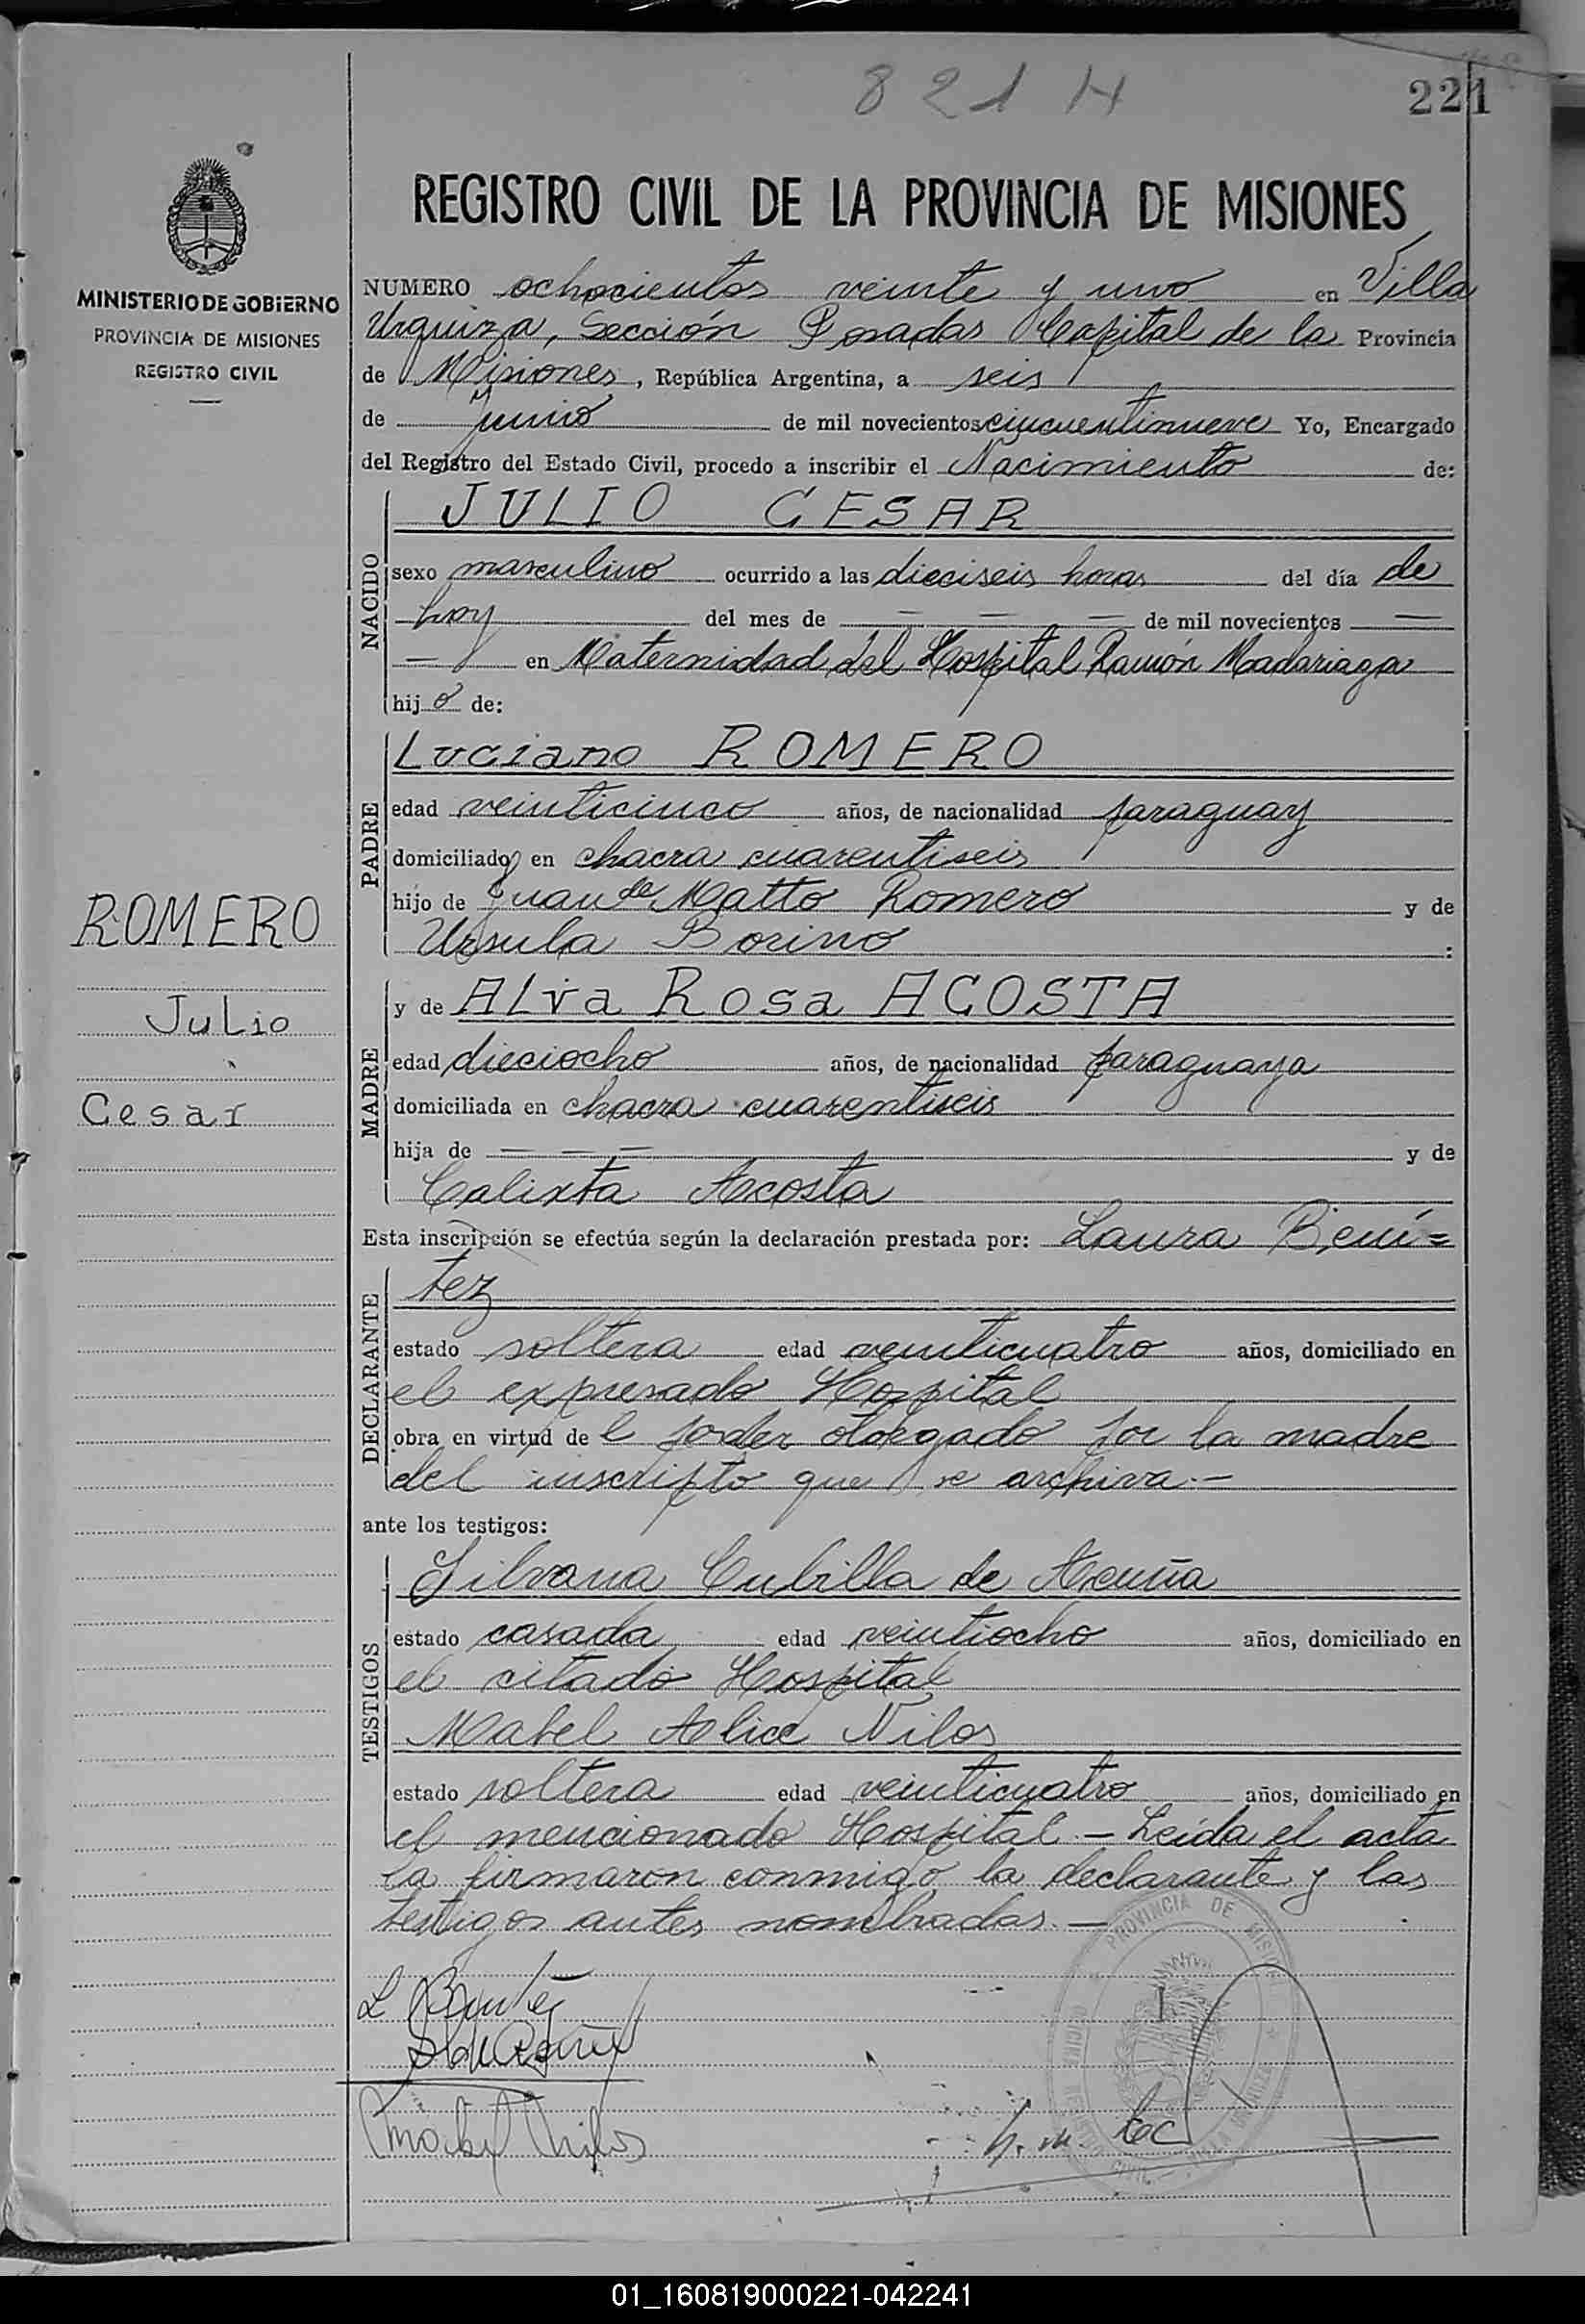 821 H
221
REGISTRO CIVIL DE LA PROVINCIA DE MISIONES
MINISTERIO DE GOBIERNO
PROVINCIA DE MISIONES
REGISTRO CIVIL
NUMERO ochocientos veinte y uno en Villa
Urquiza, Sección Posadas Capital de la Provincia
de Misiones, República Argentina, a seis
de junio de mil novecientos cincuentinueve Yo, Encargado
del Registro del Estado Civil, procedo a inscribir el Nacimiento de:
NACIDO
JULIO CESAR
sexo masculino ocurrido a las dieciseis horas del día de
hoy del mes de — — — de mil novecientos —
— en Maternidad del Hospital Ramón Madariaga
hijo de:
PADRE
Luciano ROMERO
edad veinticinco años, de nacionalidad paraguay
domiciliado en chacra cuarentiseis
hijo de Juan de Matto Romero y de
Ursula Borino :
ROMERO
Julio
Cesar
MADRE
y de Alva Rosa ACOSTA
edad dieciocho años, de nacionalidad paraguaya
domiciliada en chacra cuarentiseis
hija de — — — y de
Calixta Acosta
Esta inscripción se efectúa según la declaración prestada por: Laura Bení=
DECLARANTE
tez
estado soltera edad veinticuatro años, domiciliado en
el expresado Hospital
obra en virtud de l poder otorgado por la madre
del inscripto que se archiva.—
ante los testigos:
TESTIGOS
Silvana Cubilla de Acuña
estado casada edad veintiocho años, domiciliado en
el citado Hospital
Mabel Alice Nilos
estado soltera edad veinticuatro años, domiciliado en
el mencionado Hospital.— Leída el acta
la firmaron conmigo la declarante y las
testigos antes nombradas.—
PROVINCIA DE MISIONES
L Benítez
Mabel Nilos
01_160819000221-042241